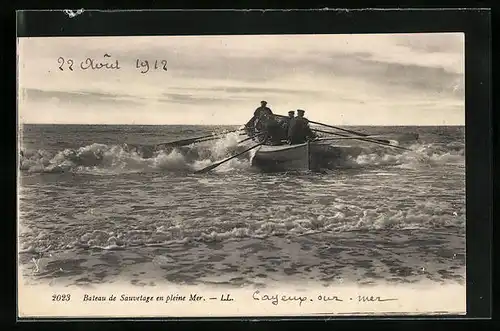 22 Août 1912
2023 Bateau de Sauvetage en pleine Mer. — LL. Cayeux-sur-mer